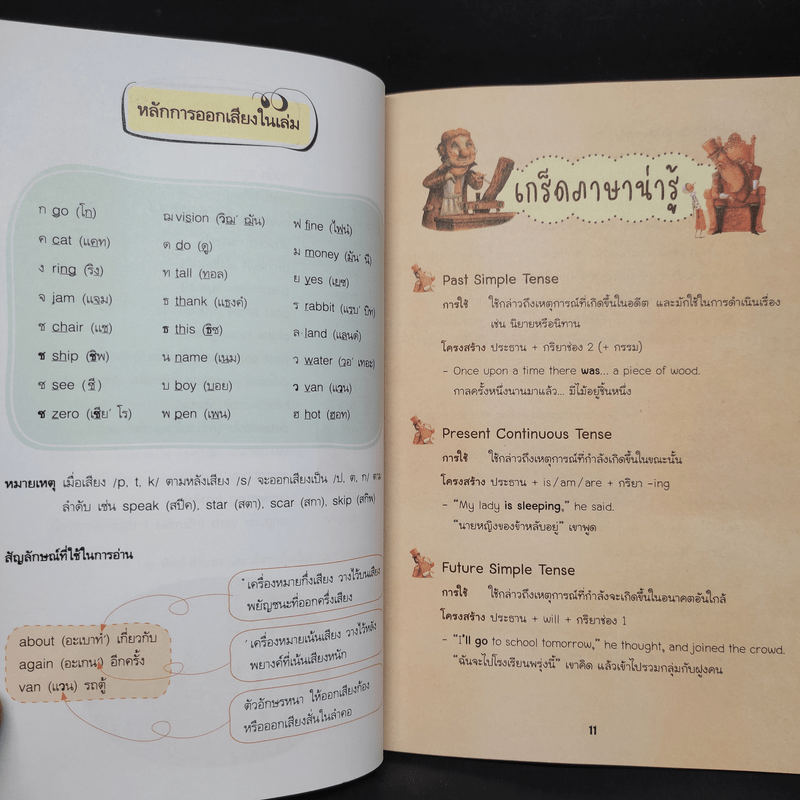 หลักการออกเสียงในเล่ม
ก go (โก)
ค cat (แคท)
ง ring (ริง)
จ jam (แจม)
ช chair (แช)
ช ship (ชิพ)
ซ see (ซี)
ซ zero (เซีย' โร)
ฌ vision (วิฌ' ฌัน)
ด do (ดู)
ท tall (ทอล)
ธ thank (แธงค์)
ธ this (ธิซ)
น name (เนม)
บ boy (บอย)
พ pen (เพน)
ฟ fine (ไฟน์)
ม money (มัน' นี)
ย yes (เยซ)
ร rabbit (แรบ' บิท)
ล land (แลนด์)
ว water (วอ' เทอะ)
ว van (แวน)
ฮ hot (ฮอท)
หมายเหตุ เมื่อเสียง /p, t, k/ ตามหลังเสียง /s/ จะออกเสียงเป็น /ป, ต, ก/ ตาม
ลำดับ เช่น speak (สปีค), star (สตา), scar (สกา), skip (สกิพ)
สัญลักษณ์ที่ใช้ในการอ่าน
about (อะเบาท์') เกี่ยวกับ
again (อะเกน') อีกครั้ง
van (แวน) รถตู้
เครื่องหมายกึ่งเสียง วางไว้บนเสียง
พยัญชนะที่ออกครึ่งเสียง
' เครื่องหมายเน้นเสียง วางไว้หลัง
พยางค์ที่เน้นเสียงหนัก
ตัวอักษรหนา ให้ออกเสียงก้อง
หรือออกเสียงสั่นในลำคอ
เกร็ดภาษาน่ารู้
Past Simple Tense
การใช้ ใช้กล่าวถึงเหตุการณ์ที่เกิดขึ้นในอดีต และมักใช้ในการดำเนินเรื่อง
เช่น นิยายหรือนิทาน
โครงสร้าง ประธาน + กริยาช่อง 2 (+ กรรม)
- Once upon a time there was... a piece of wood.
กาลครั้งหนึ่งนานมาแล้ว... มีไม้อยู่ชิ้นหนึ่ง
Present Continuous Tense
การใช้ ใช้กล่าวถึงเหตุการณ์ที่กำลังเกิดขึ้นในขณะนั้น
โครงสร้าง ประธาน + is/am/are + กริยา -ing
- "My lady is sleeping," he said.
"นายหญิงของข้าหลับอยู่" เขาพูด
Future Simple Tense
การใช้ ใช้กล่าวถึงเหตุการณ์ที่กำลังจะเกิดขึ้นในอนาคตอันใกล้
โครงสร้าง ประธาน + will + กริยาช่อง 1
- "I'll go to school tomorrow," he thought, and joined the crowd.
"ฉันจะไปโรงเรียนพรุ่งนี้" เขาคิด แล้วเข้าไปรวมกลุ่มกับฝูงคน
11